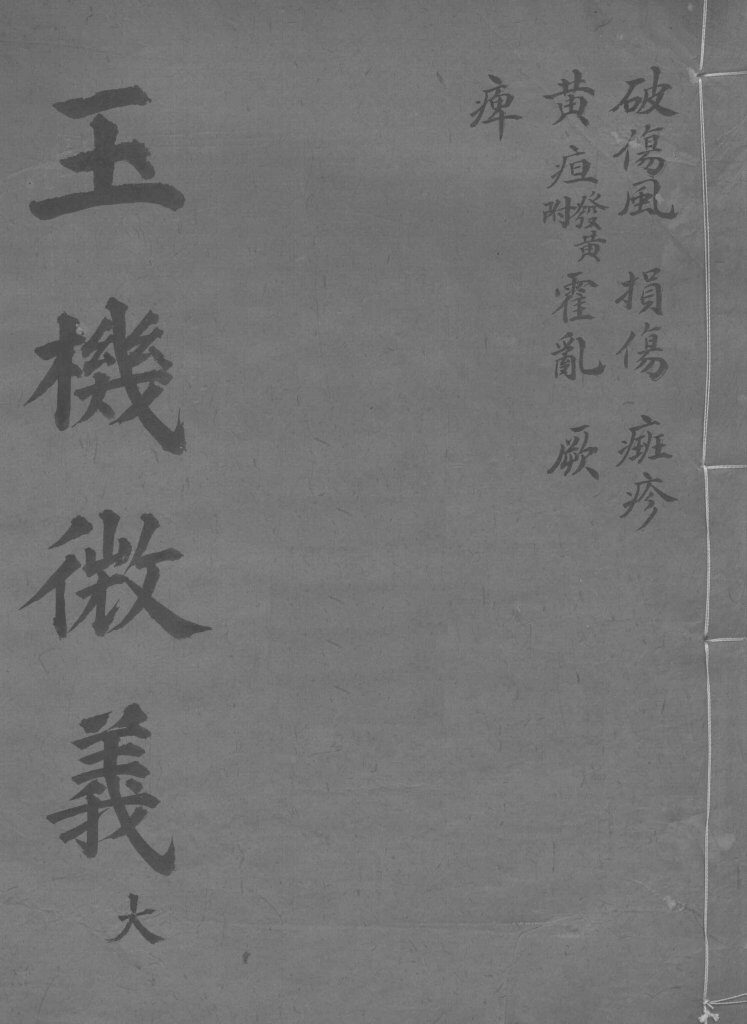 破傷風 損傷 癍疹
黄疸附發黄 霍亂 厥
痺
玉機微義 大